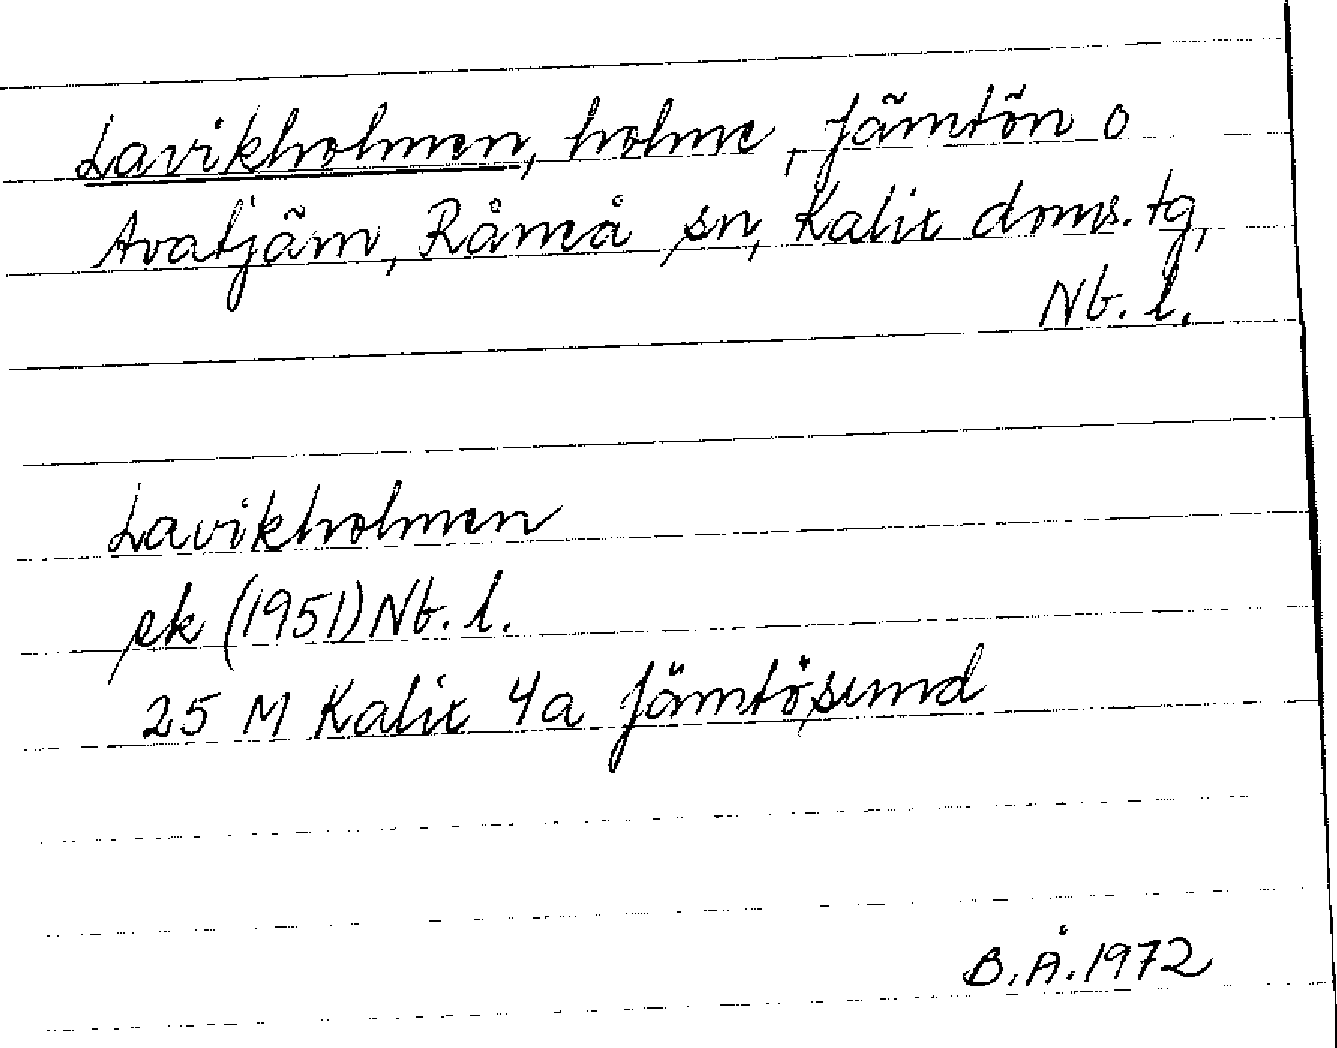 Lavikholmen, holme, Jämtön o
Avatjäm, Råneå sn, Kalix doms. tg,
Nb. l.
Lavikholmen
ek (1951) Nb. l.
25 M Kalix 4a Jämtösund
B.Å. 1972